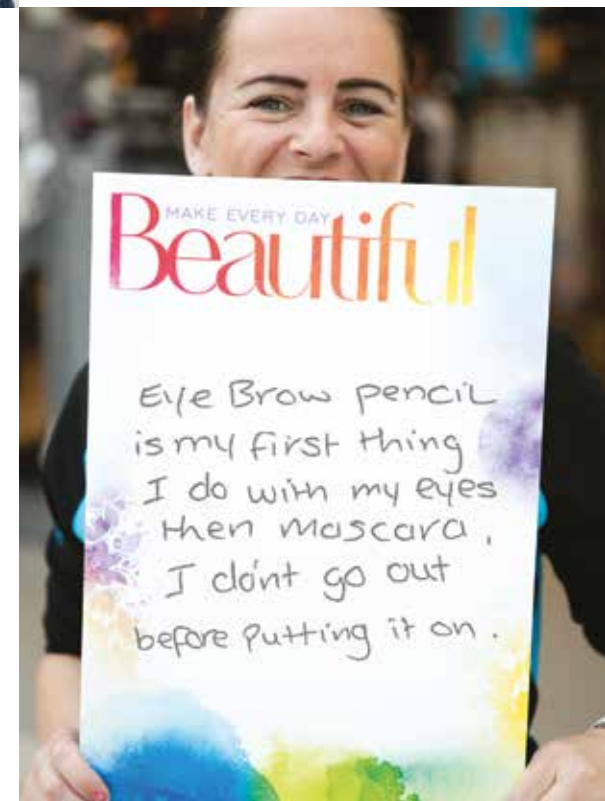 MAKE EVERY DAY
Beautiful
Eye Brow pencil
is my first thing
I do with my eyes
then mascara,
I don't go out
before putting it on.